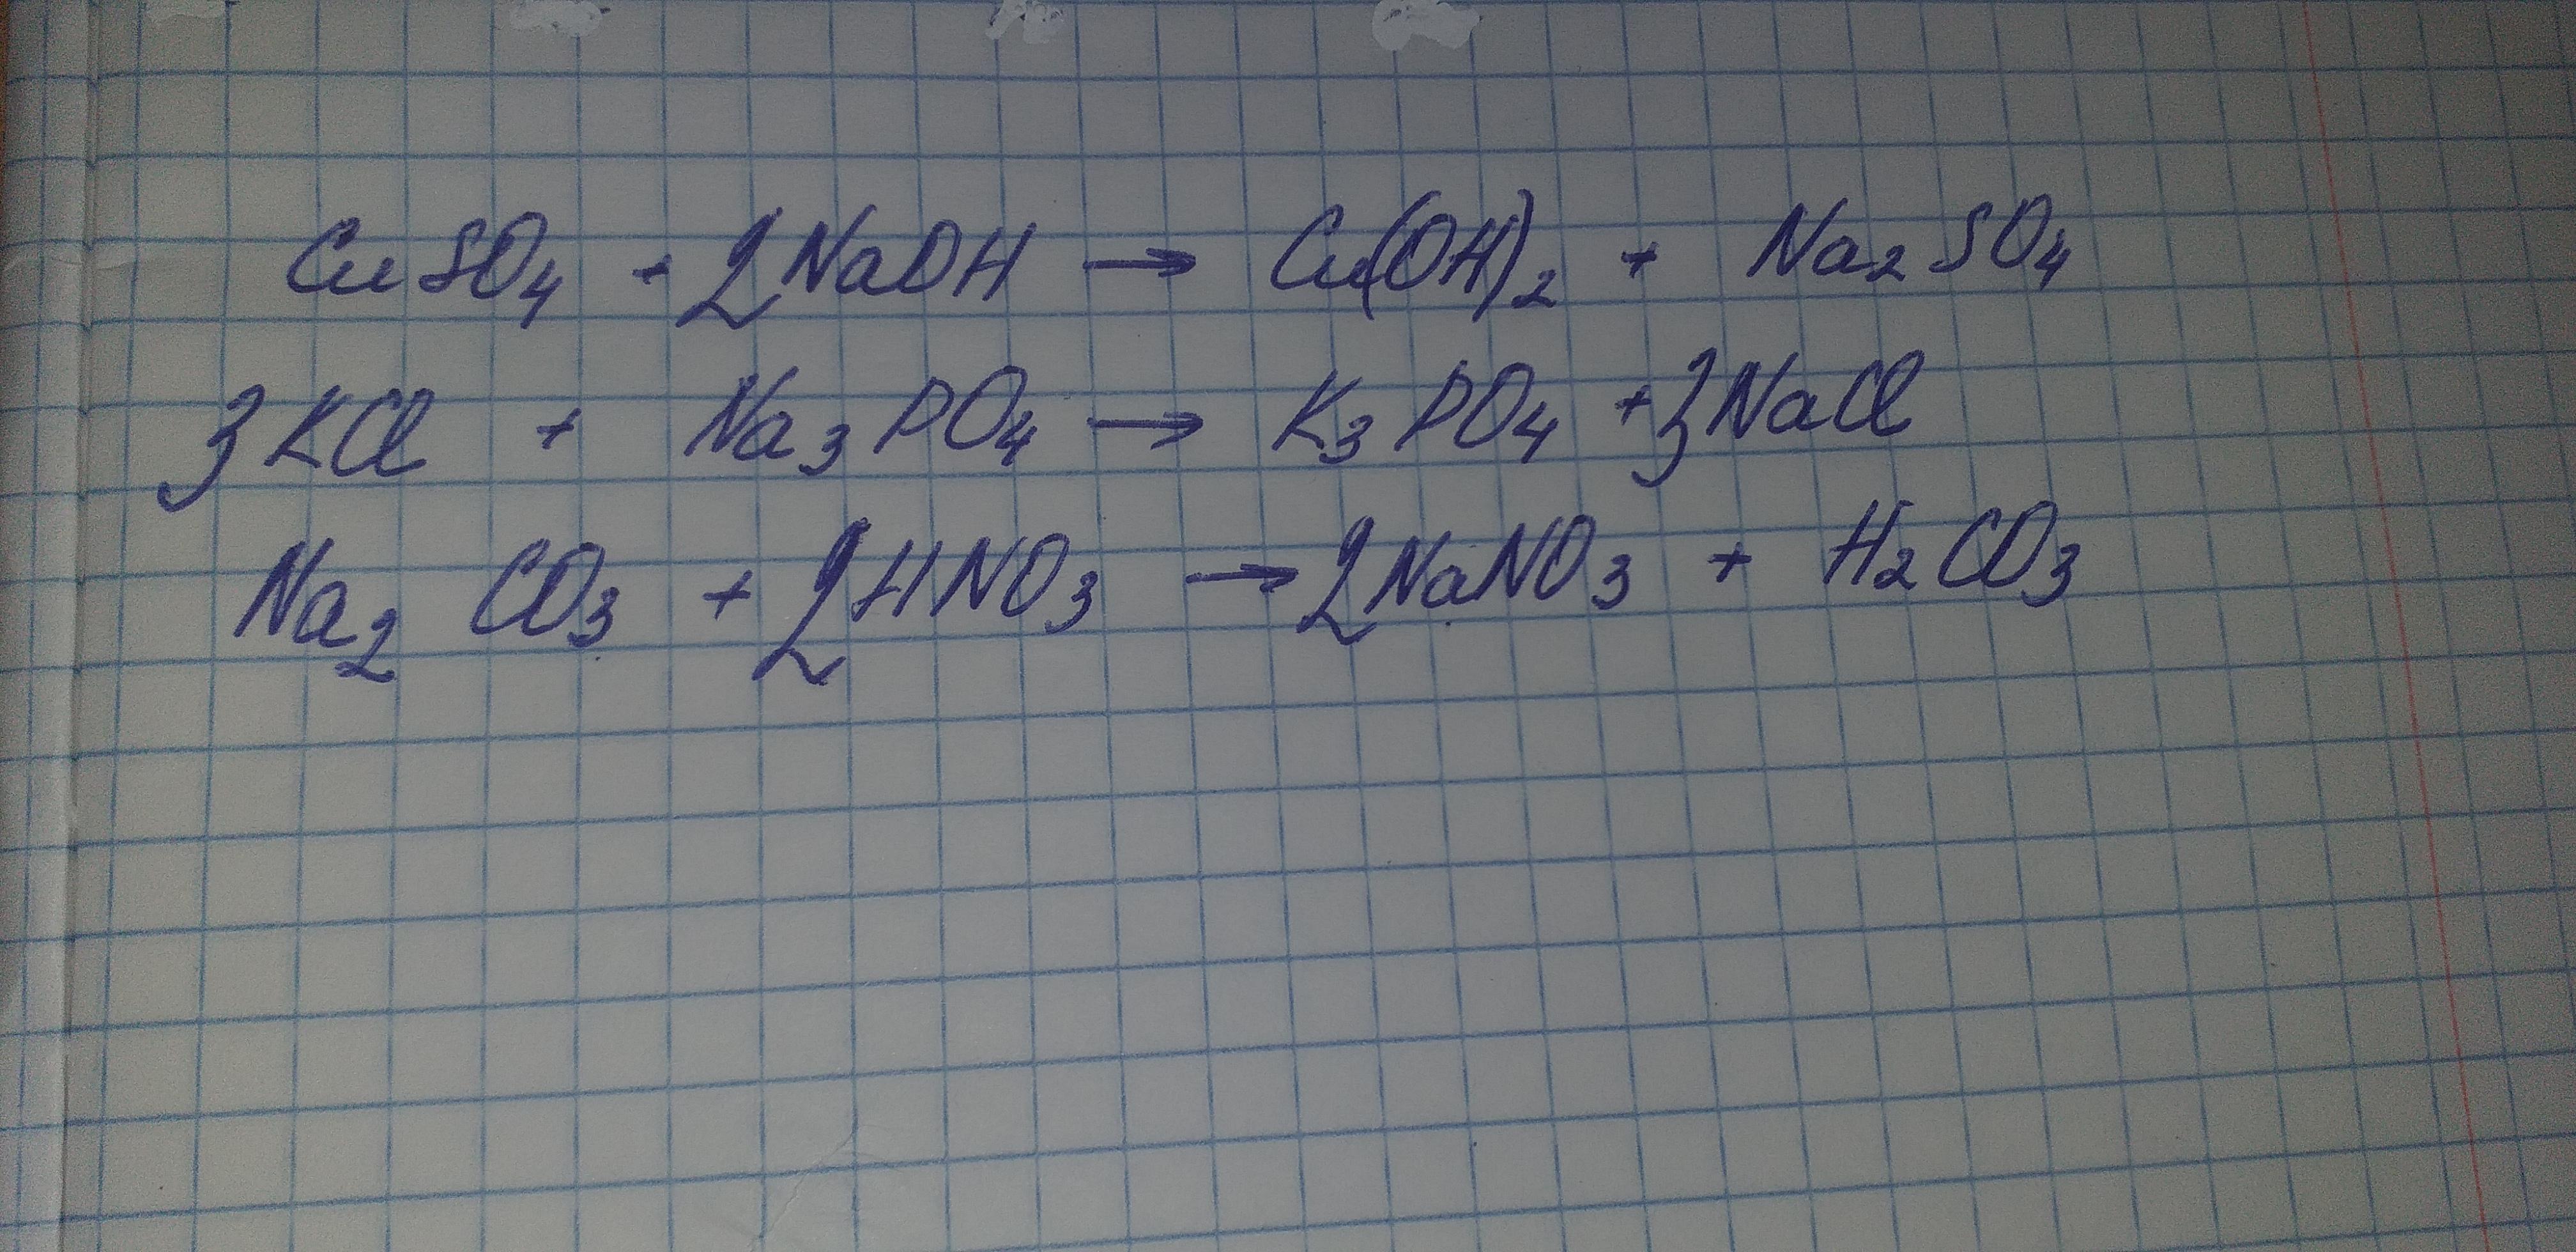 CuSO₄ + 2NaOH → Cu(OH)₂ + Na₂SO₄
3KCl + Na₃PO₄ → K₃PO₄ + 3NaCl
Na₂CO₃ + 2HNO₃ → 2NaNO₃ + H₂CO₃